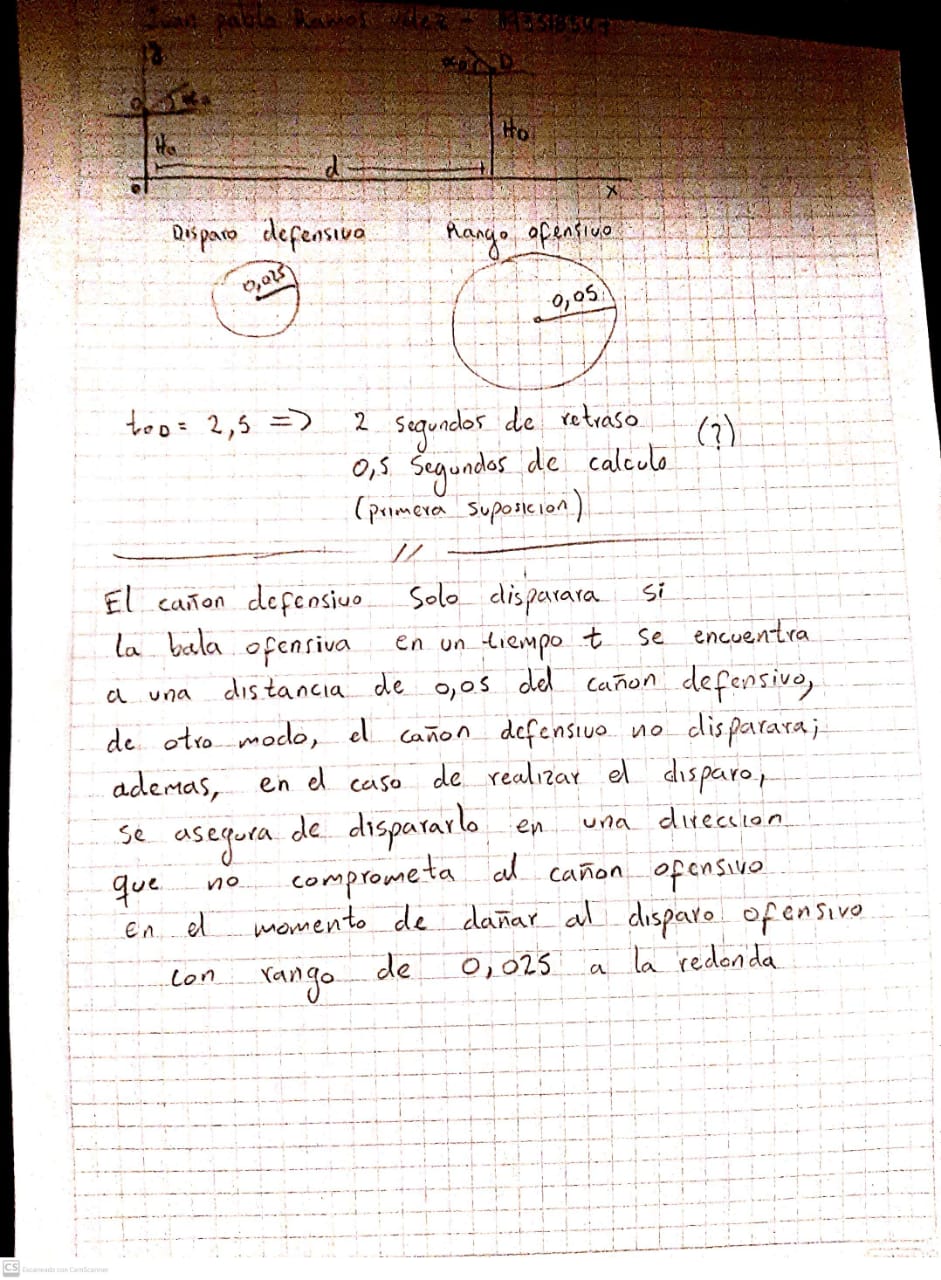 Juan pablo Ramos velez -
y
O α₀
α₀D D
H₀
H₀
d
0
x
Disparo defensivo Rango ofensivo
0,025
0,05
t₀D = 2,5 => 2 segundos de retraso (?)
0,5 Segundos de calculo
(primera suposicion)
//
El cañon defensivo Solo disparara si
la bala ofensiva en un tiempo t se encuentra
a una distancia de 0,05 del cañon defensivo,
de otro modo, el cañon defensivo no disparara;
ademas, en el caso de realizar el disparo,
se asegura de dispararlo en una direccion
que no comprometa al cañon ofensivo
en el momento de dañar al disparo ofensivo
con rango de 0,025 a la redonda
CS Escaneado con CamScanner